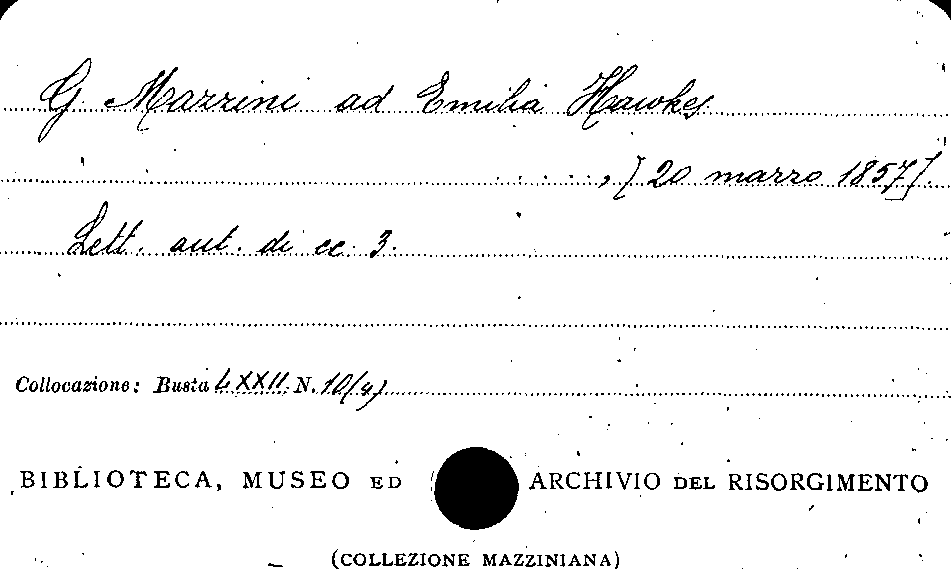 G. Mazzini ad Emilia Hawkes
....., [20 marzo 1857].
Lett. aut. di cc. 3.
Collocazione: Busta LXXII N. 10(4)
BIBLIOTECA, MUSEO ED ARCHIVIO DEL RISORGIMENTO
(COLLEZIONE MAZZINIANA)